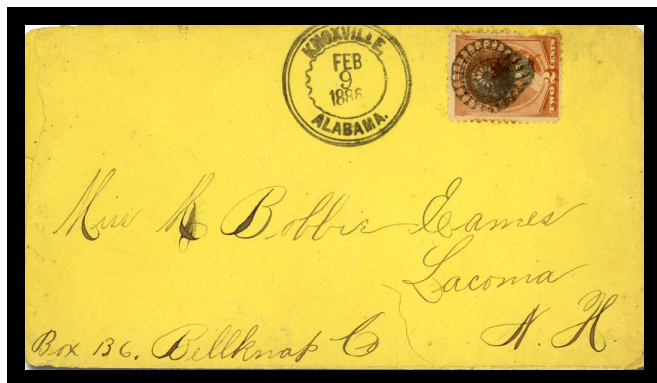 KNOXVILLE,
FEB
9
1886
ALABAMA.
TWO 2 CENTS
Miss M Bobbie Eames
Laconia
N. H.
Box 136. Bellknap Co